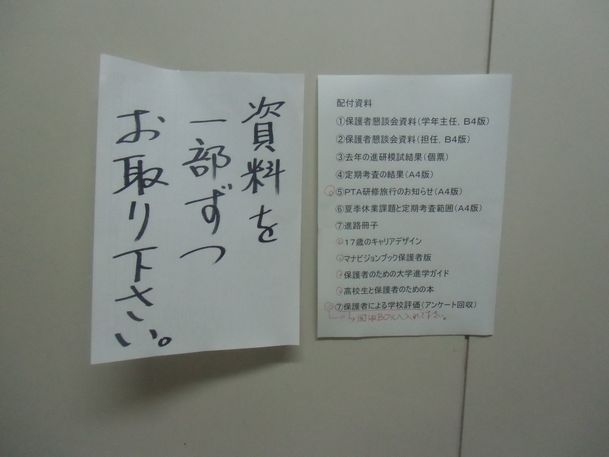 資料を
一部ずつ
お取り下さい。
配付資料
①保護者懇談会資料(学年主任, B4版)
②保護者懇談会資料(担任, B4版)
③去年の進研模試結果(個票)
④定期考査の結果(A4版)
⑤PTA研修旅行のお知らせ(A4版)
⑥夏季休業課題と定期考査範囲(A4版)
⑦進路冊子
17歳のキャリアデザイン
マナビジョンブック保護者版
保護者のための大学進学ガイド
高校生と保護者のための本
⑦保護者による学校評価(アンケート回収)